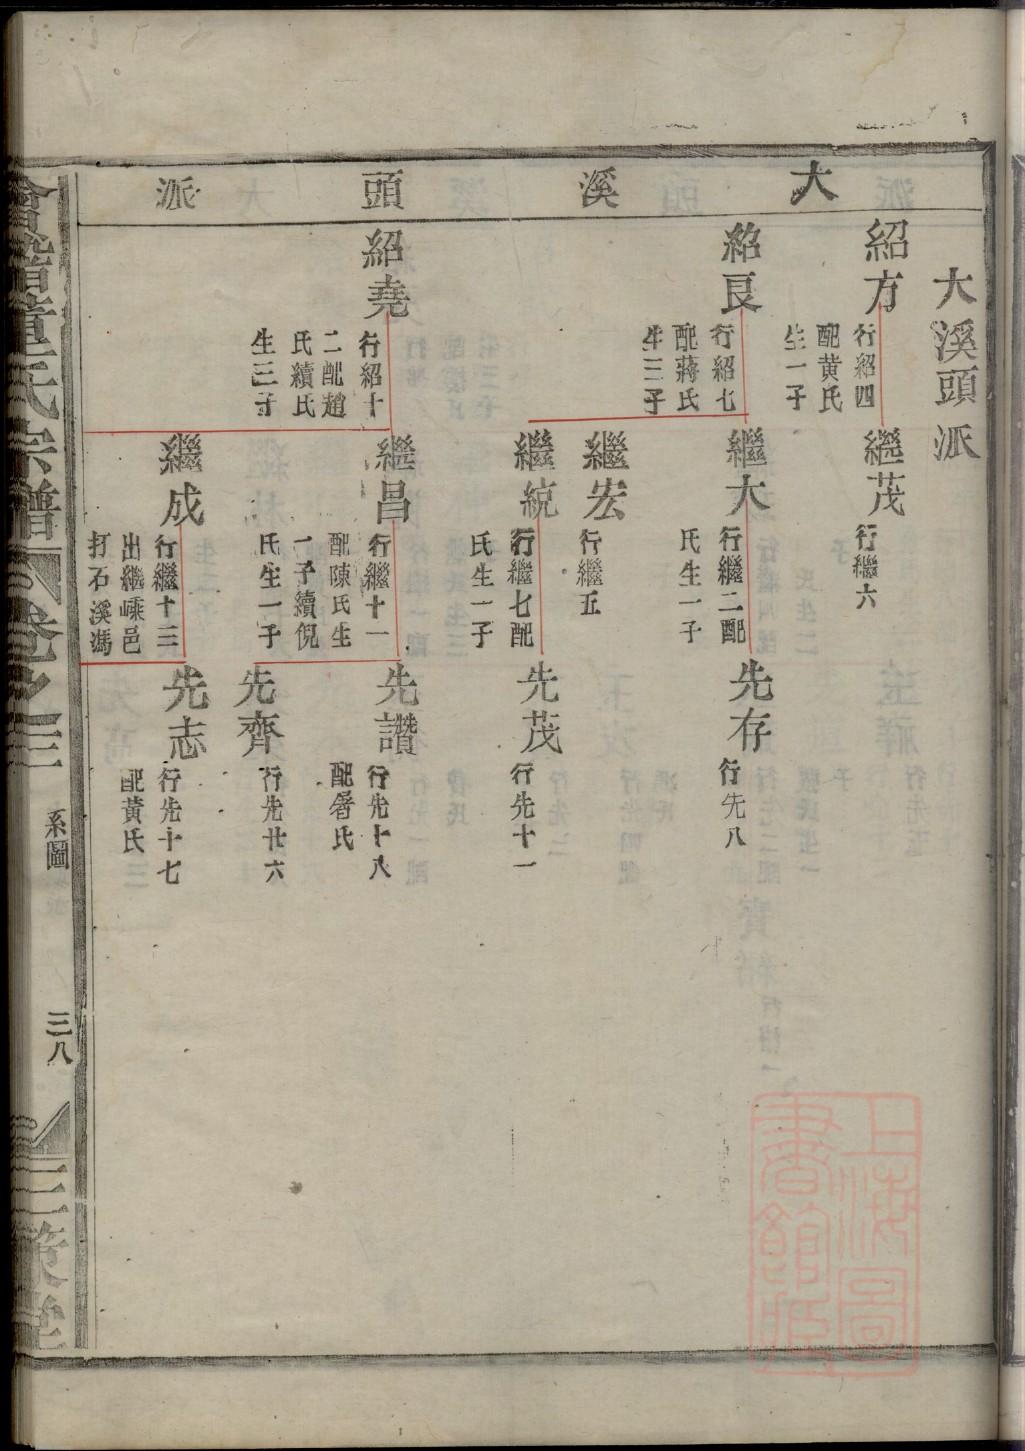 大溪頭派
大溪頭派
紹方
行紹四
配黄氏
生一子
紹良
行紹七
配蔣氏
生三子
紹堯
行紹十
二配趙
氏續氏
生三子
繼茂
行繼六
繼大
行繼二配
氏生一子
繼宏
行繼五
繼統
行繼七配
氏生一子
繼昌
行繼十一
配陳氏生
一子續倪
氏生一子
繼成
行繼十三
出繼嵊邑
打石溪馮
先存
行先八
先茂
行先十一
先讚
行先十八
配屠氏
先齊
行先廿六
先志
行先十七
配黃氏
會稽董氏宗譜
卷之三
系圖
三八
三策堂
上海圖
書館藏